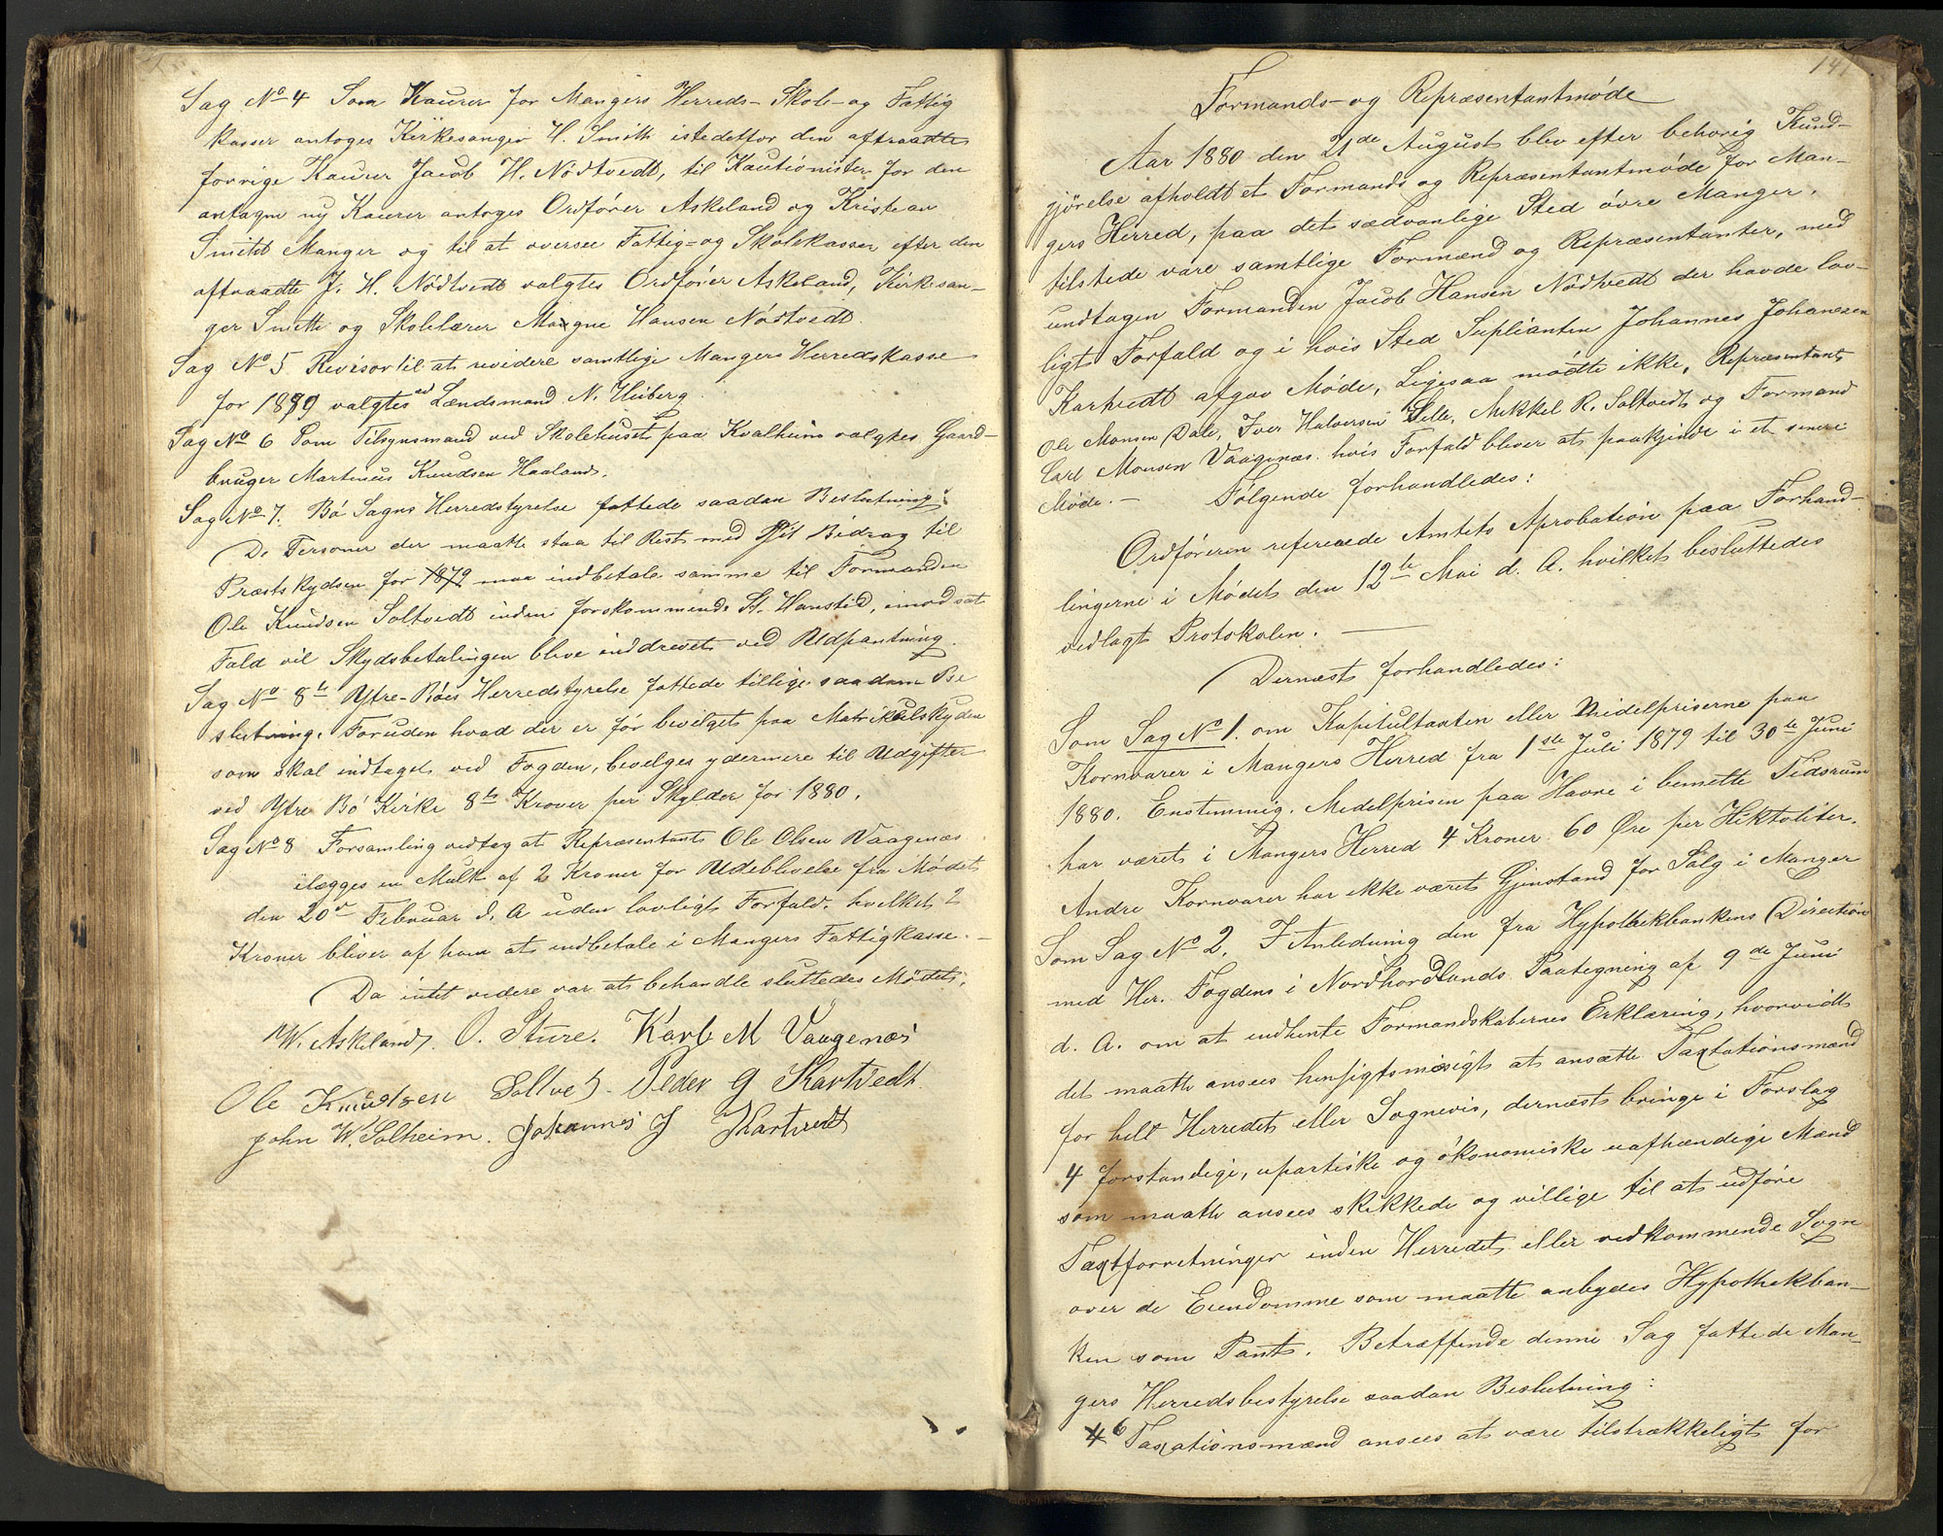 Sag No 4 Som Kaserer for Mangers Herreds- Skole- og Fattig
kasser antoges Kirkesanger H. Smith istedetfor den aftraadte
forrige Kaserer Jacob H. Nødtvedt, til Kautionister for den
antagne ny Kaserer antoges Ordfører Askeland og Kristean
Smith Manger og til at oversee Fattig- og Skolekassen efter den
aftraadte J. H. Nødtvedt valgtes Ordfører Askeland, Kirkesan-
ger Smith og Skolelærer Magne Hansen Nødtvedt.
Sag No 5 Revisor til at revidere samtlige Mangers Herredskasse
for 1879 valgtes Lændsmand N. Heiberg.
Sag No 6 Som Tilsynsmand ved Skolehuset paa Kvalheim valgtes Gaard-
bruger Martinus Knudsen Haaland.
Sag No 7. Bø Sogns Herredstyrelse fattede saadan Beslutning:
De Personer der maatte staa til Rest med sit Bidrag til
Præstskydsen for 1879 maa indbetale samme til Formanden
Ole Knudsen Soltvedt inden forskommende St. Hanstid, imodsat
Fald vil Skydsbetalingen blive inddrevet ved Udpantning.
Sag No 8de Ytre-Bøes Herredstyrelse fattede tillige saadan Be
slutning. Foruden hvad der er før bevilget paa Matrikulskylden
som skal indtaget ved Fogden, bevilges ydermere til Udgifter
ved Ytre Bø Kirke 8te Kroner per Skylder for 1880.
Sag No 8 Forsamling vedtog at Repræsentant Ole Olsen Vaagenæs
ilægges en Mulk af 2 Kroner for Udeblivelse fra Mødet
den 20de Februar d. A uden lovligt Forfald, hvilket 2
Kroner bliver af ham at indbetale i Mangers Fattigkasse. -
Da intet videre var at behandle sluttedes Mødet.
W. Askeland. O. Sture. Karl M Vaagenæs
Ole Knudsen Soltvet. Peder G Kartvedt
John W. Solheim. Johannes J Kartvedt
141
Formands- og Repræsentantmøde
Aar 1880 den 21de August blev efter behørig Kund-
gjørelse afholdt et Formands og Repræsentantmøde for Man-
gers Herred, paa det sædvanlige Sted øvre Manger.
tilstede vare samtlige Formænd og Repræsentanter, med
undtagen Formanden Jacob Hansen Nødtvedt der havde lov-
ligt Forfald og i hvis Sted Suplianten Johannes Johanesen
Kartvedt afgav Møde, Ligesaa mødte ikke, Repræsentant
Ole Monsen Dale, Iver Halversen Sele, Mikkel R. Soltvedt og Formand
Carl Monsen Vaagenæs. hvis Forfald bliver at paakjende i et senere
Møde. - Følgende forhandledes:
Ordføreren refererede Amtets Aprobation paa Forhand-
lingerne i Mødet den 12te Mai d. A. hvilket besluttedes
vedlagt Protokolen.
Dernæst forhandledes:
Som Sag No 1. om Kapitultaxten eller Midelpriserne paa
Kornvarer i Mangers Herred fra 1ste Juli 1879 til 30te Juni
1880. Enstemmig. Medelprisen paa Havre i bemelte Tidsrum
har været i Mangers Herred 4 Kroner 60 Øre per Hektoliter.
Andre Kornvarer har ikke været Gjenstand for Salg i Manger
Som Sag No 2. I Anledning den fra Hypothekbankens Direction
med Her. Fogdens i Nordhordlands Paategning af 9de Juni
d. A. om at indhente Formandskabernes Erklæring, hvorvidt
det maatte ansees hensigtsmæsigt at ansætte Taxtationsmænd
for helt Herredet eller Sognevis, dernæst bringe i Forslag
4 forstandige, upartiske og økonomiske uafhændige Mænd
som maatte ansees skikkede og villige til at udføre
Taxtforretninger inden Herredet eller vedkommende Sogn
over de Eiendomme som maatte anbydes Hypothekban-
ken som Pant. Betræffende denne Sag fattede Man-
gers Herredsbestyrelse saadan Beslutning:
6 Taxationsmænd ansees at være tilstrækkeligt for